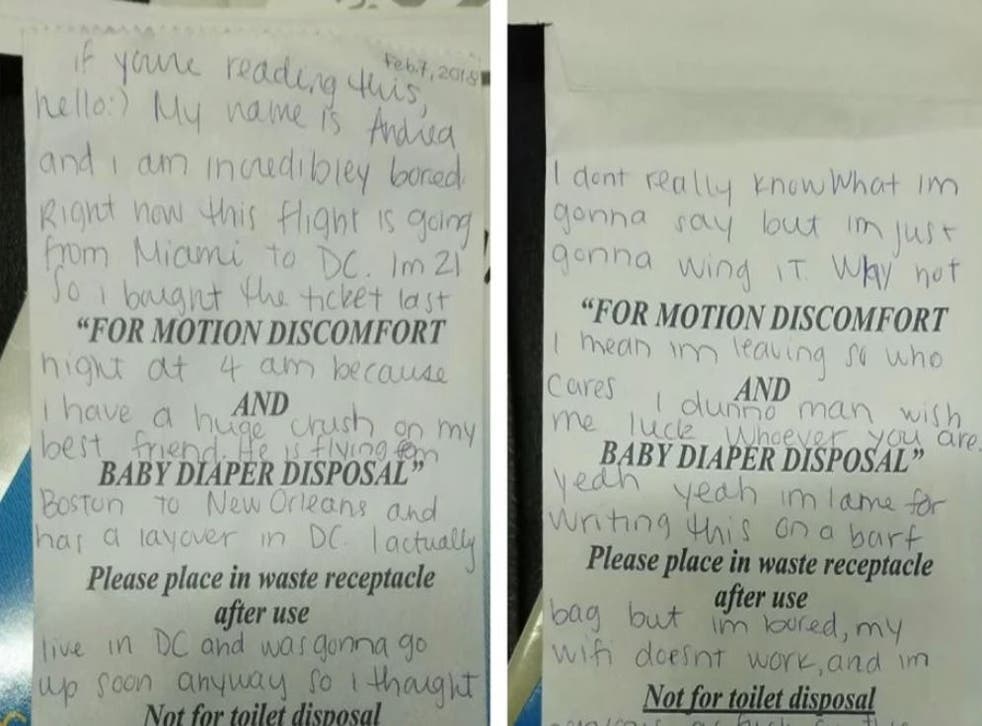 Feb.7, 2018
if youre reading this,
hello:) My name is Andrea
and i am incredibley bored.
Right now this flight is going
from Miami to DC. Im 21
So i bought the ticket last
“FOR MOTION DISCOMFORT
night at 4 am because
AND
i have a huge crush on my
best friend. He is flying from
BABY DIAPER DISPOSAL”
Boston to New Orleans and
has a layover in DC. I actually
Please place in waste receptacle
after use
live in DC and was gonna go
up soon anyway so i thought
Not for toilet disposal
I dont really know What im
gonna say but im just
gonna wing it. Why not
“FOR MOTION DISCOMFORT
I mean im leaving so who
cares AND
I dunno man wish
me luck whoever you are.
BABY DIAPER DISPOSAL”
yeah yeah im lame for
writing this on a barf
Please place in waste receptacle
after use
bag but im bored, my
wifi doesnt work, and im
Not for toilet disposal